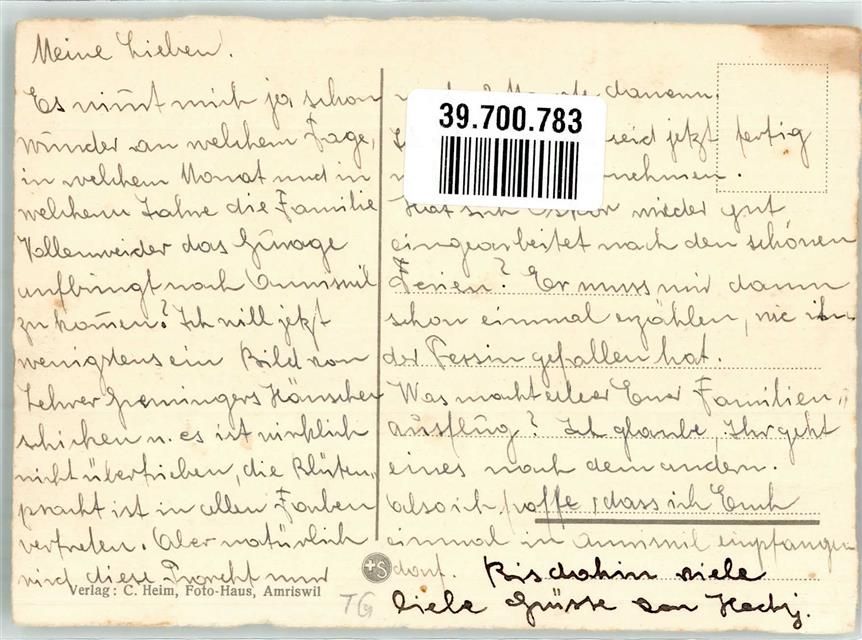 Meine Lieben.
Es nimmt mich ja schon
wunder an welchem Tage,
in welchem Monat und in
welchem Jahre die Familie
Vollenweider das Gurage
aufbringt nach Amriswil
zu kommen? Ich will jetzt
wenigstens ein Bild von
Lehrer Greiningers Häuschen
schicken u. es ist wirklich
nicht übertrieben, die Blüten„
pracht ist in allen Farben
vertreten. Aber natürlich
wird diese Pracht nur
dauern.
39.700.783
seid jetzt fertig
nehmen.
Hat sich Oskar wieder gut
eingearbeitet nach den schönen
Ferien? Er muss mir dann
schon einmal erzählen, wie ihm
der Tessin gefallen hat.
Was macht Euer Familien„
ausflug? Ich glaube, Ihr geht
eines nach dem andern.
Also ich hoffe, dass ich Euch
einmal in Amriswil empfangen
darf. Bis dahin viele
liebe Grüsse von Hedy.
+S
Verlag: C. Heim, Foto-Haus, Amriswil
TG